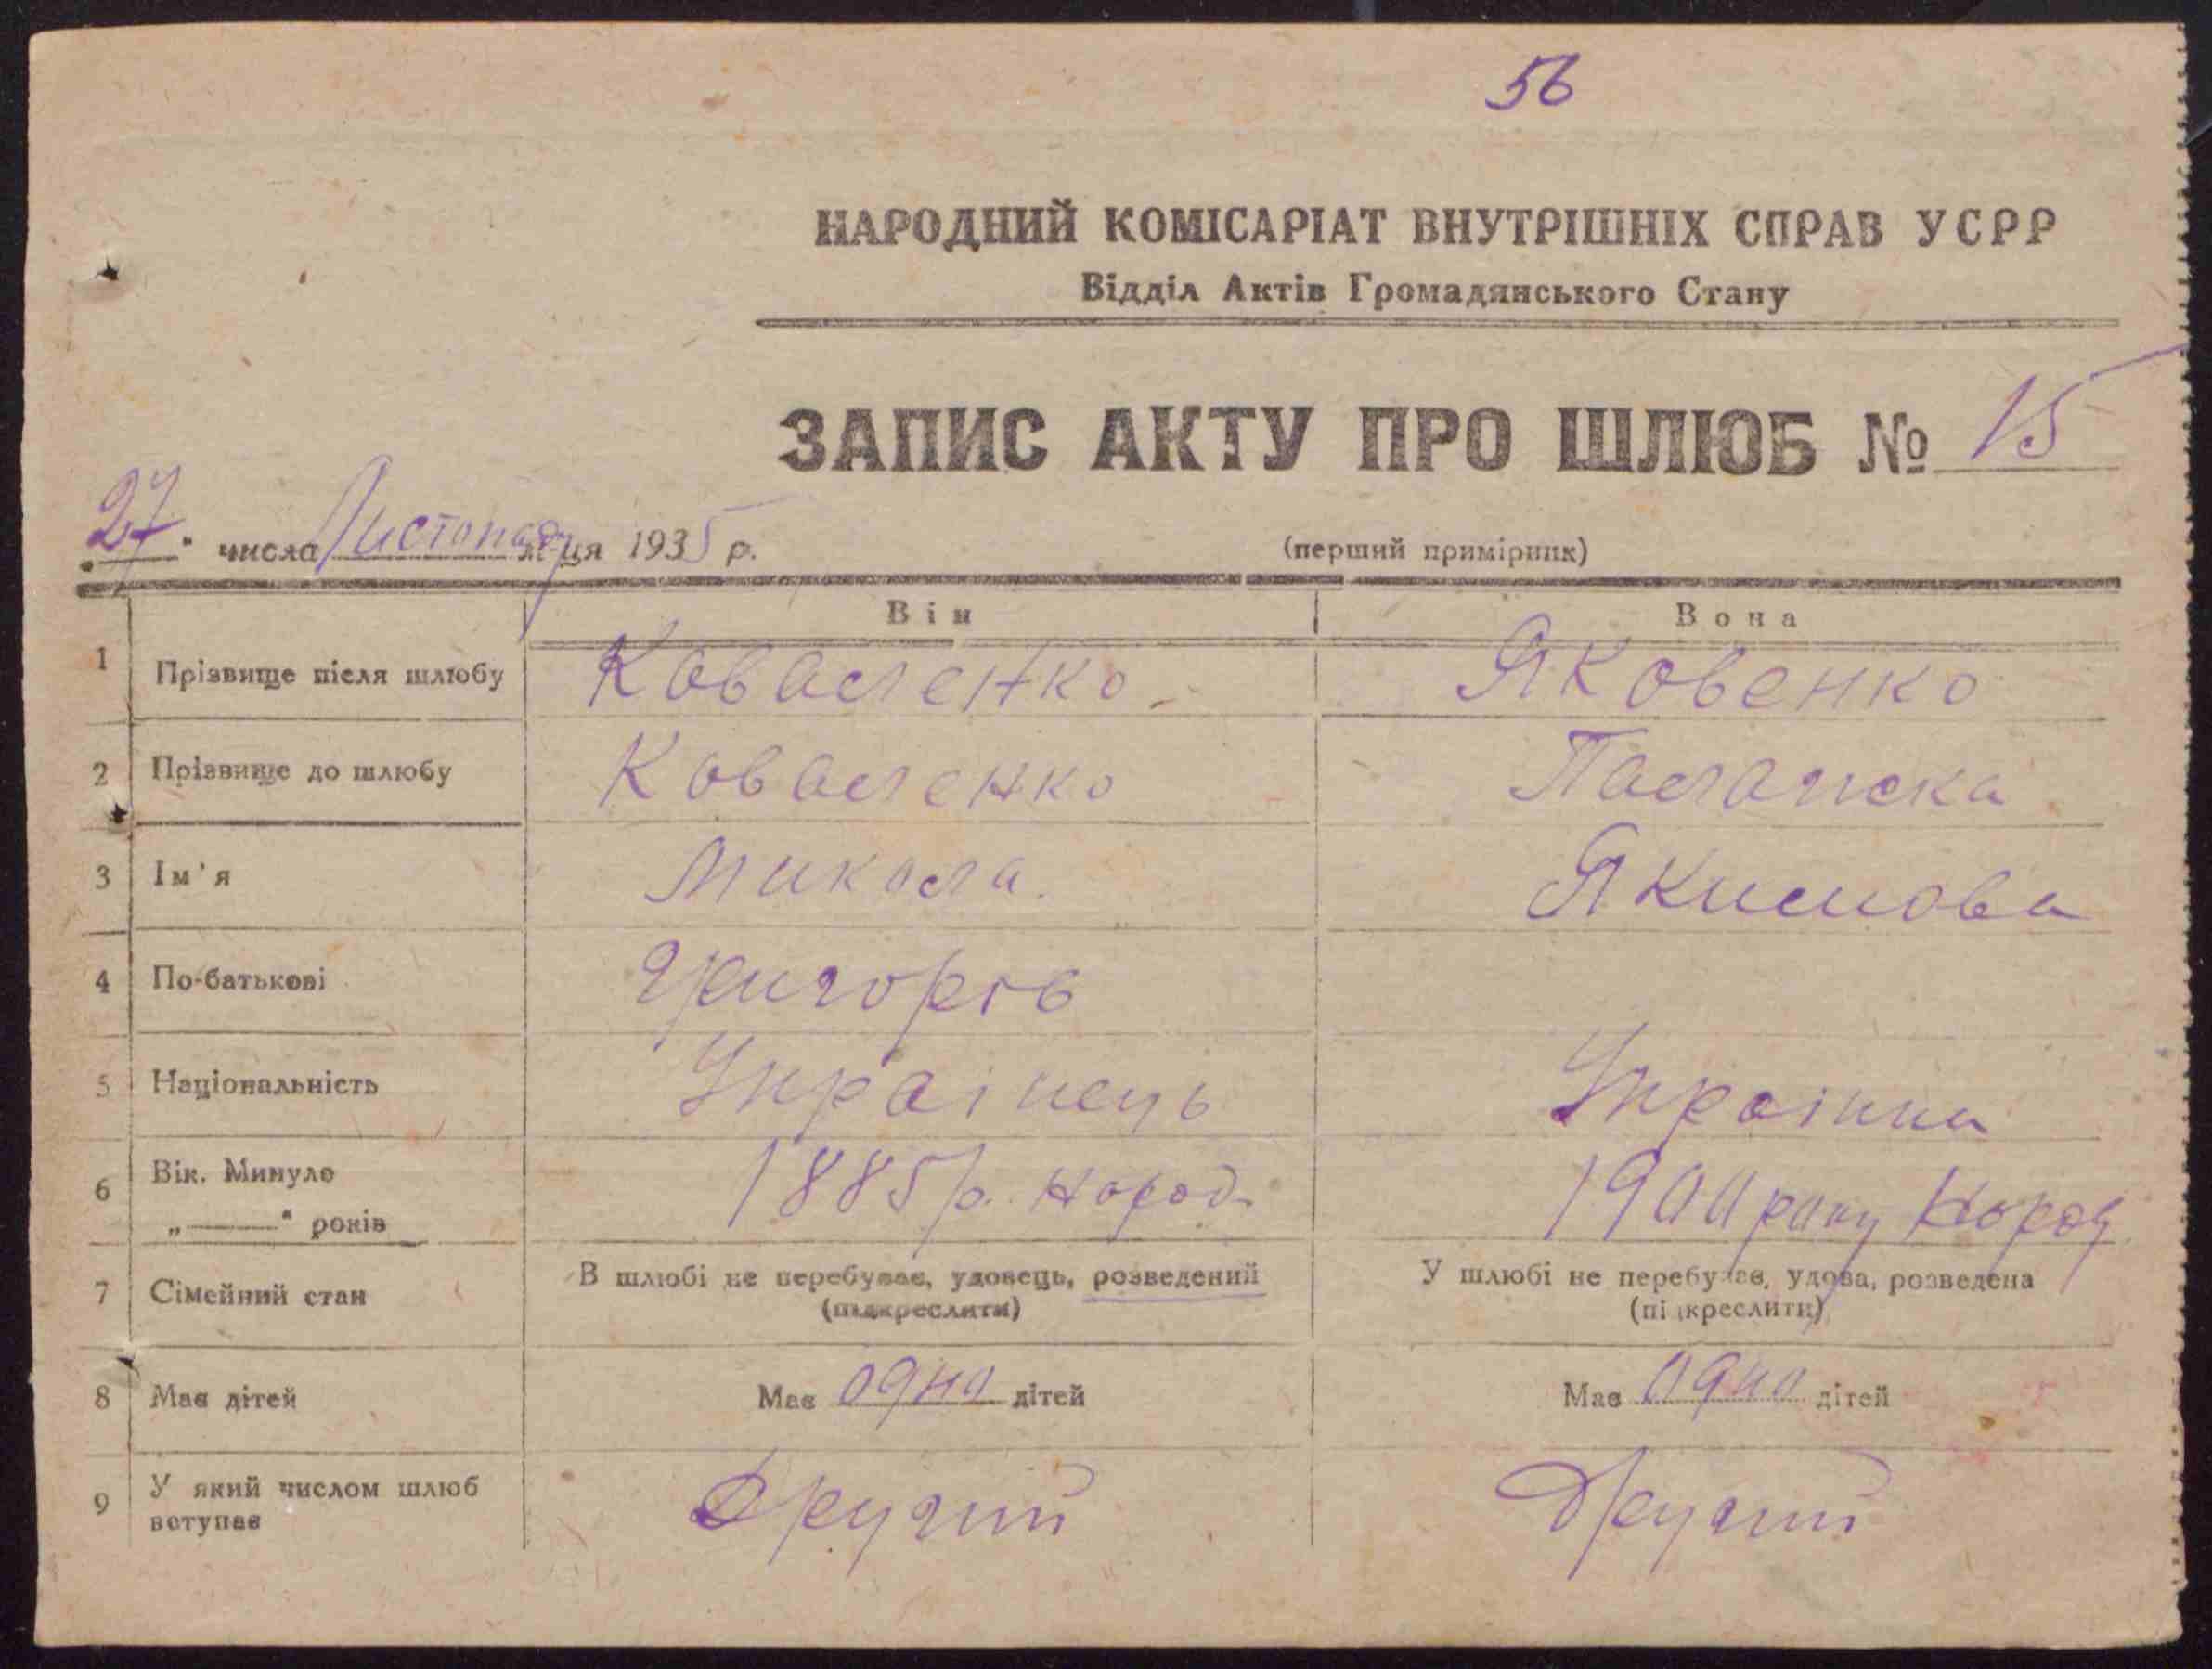 56
НАРОДНИЙ КОМІСАРІАТ ВНУТРІШНІХ СПРАВ УСРР
Відділ Актів Громадянського Стану
ЗАПИС АКТУ ПРО ШЛЮБ № 15
„27“ числа Листопаду м-ця 1935 р. (перший примірник)
Він Вона
1 Прізвище після шлюбу Коваленко Яковенко
2 Прізвище до шлюбу Коваленко Палажка
3 Ім'я Микола Якимова
4 По-батькові Григорів
5 Національність Українець Українка
6 Вік. Минуло 1885 р. народ. 1900 року народ
„——“ років
7 Сімейний стан В шлюбі не перебував, удовець, розведений У шлюбі не перебував, удова, розведена
(підкреслити) (підкреслити)
8 Має дітей Має одно дітей Має одно дітей
9 У який числом шлюб Другий Другий
вступає